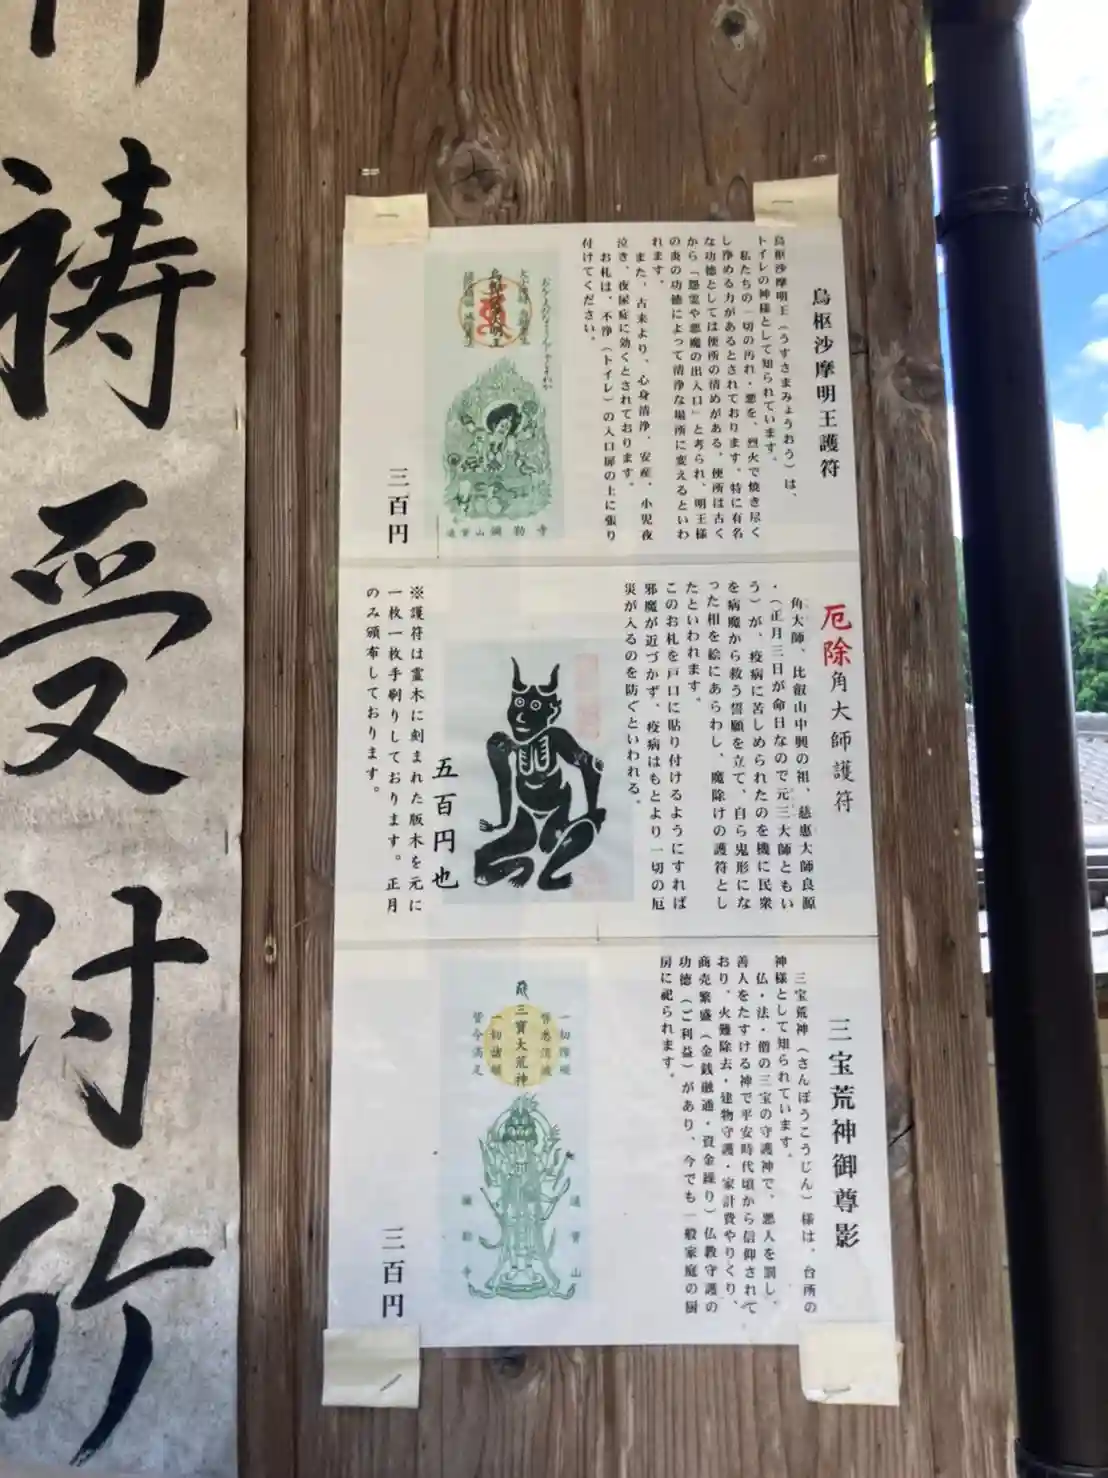 祷受付所
烏枢沙摩明王護符
烏枢沙摩明王（うすさまみょうおう）は、
トイレの神様として知られています。
私たちの一切の汚れ・悪を、烈火で焼き尽く
し浄める力があるとされております。特に有名
な功徳としては便所の清めがある、便所は古く
から「怨霊や悪魔の出入口」と考られ、明王様
の炎の功徳によって清浄な場所に変えるといわ
れます。
また、古来より、心身清浄、安産、小児夜
泣き、夜尿症に効くとされております。
お札は、不浄（トイレ）の入口扉の上に張り
付けてください。
彌勒寺
三百円
厄除角大師護符
角大師、比叡山中興の祖、慈恵大師良源
・（正月三日が命日なので元三大師ともい
う）が、疫病に苦しめられたのを機に民衆
を病魔から救う誓願を立て、自ら鬼形にな
った相を絵にあらわし、魔除けの護符とし
たといわれます。
このお札を戸口に貼り付けるようにすれば
邪魔が近づかず、疫病はもとより一切の厄
災が入るのを防ぐといわれる。
五百円也
※護符は霊木に刻まれた版木を元に
一枚一枚手刷りしております。正月
のみ頒布しております。
三宝荒神御尊影
三宝荒神（さんぽうこうじん）様は、台所の
神様として知られています。
仏・法・僧の三宝の守護神で、悪人を罰し、
善人をたすける神で平安時代頃から信仰されて
おり、火難除去・建物守護・家計費やりくり、
商売繁盛（金銭融通・資金繰り）仏教守護の
功徳（ご利益）があり、今でも一般家庭の厨
房に祀られます。
三寶大荒神
皆令満足
彌勒寺
三百円